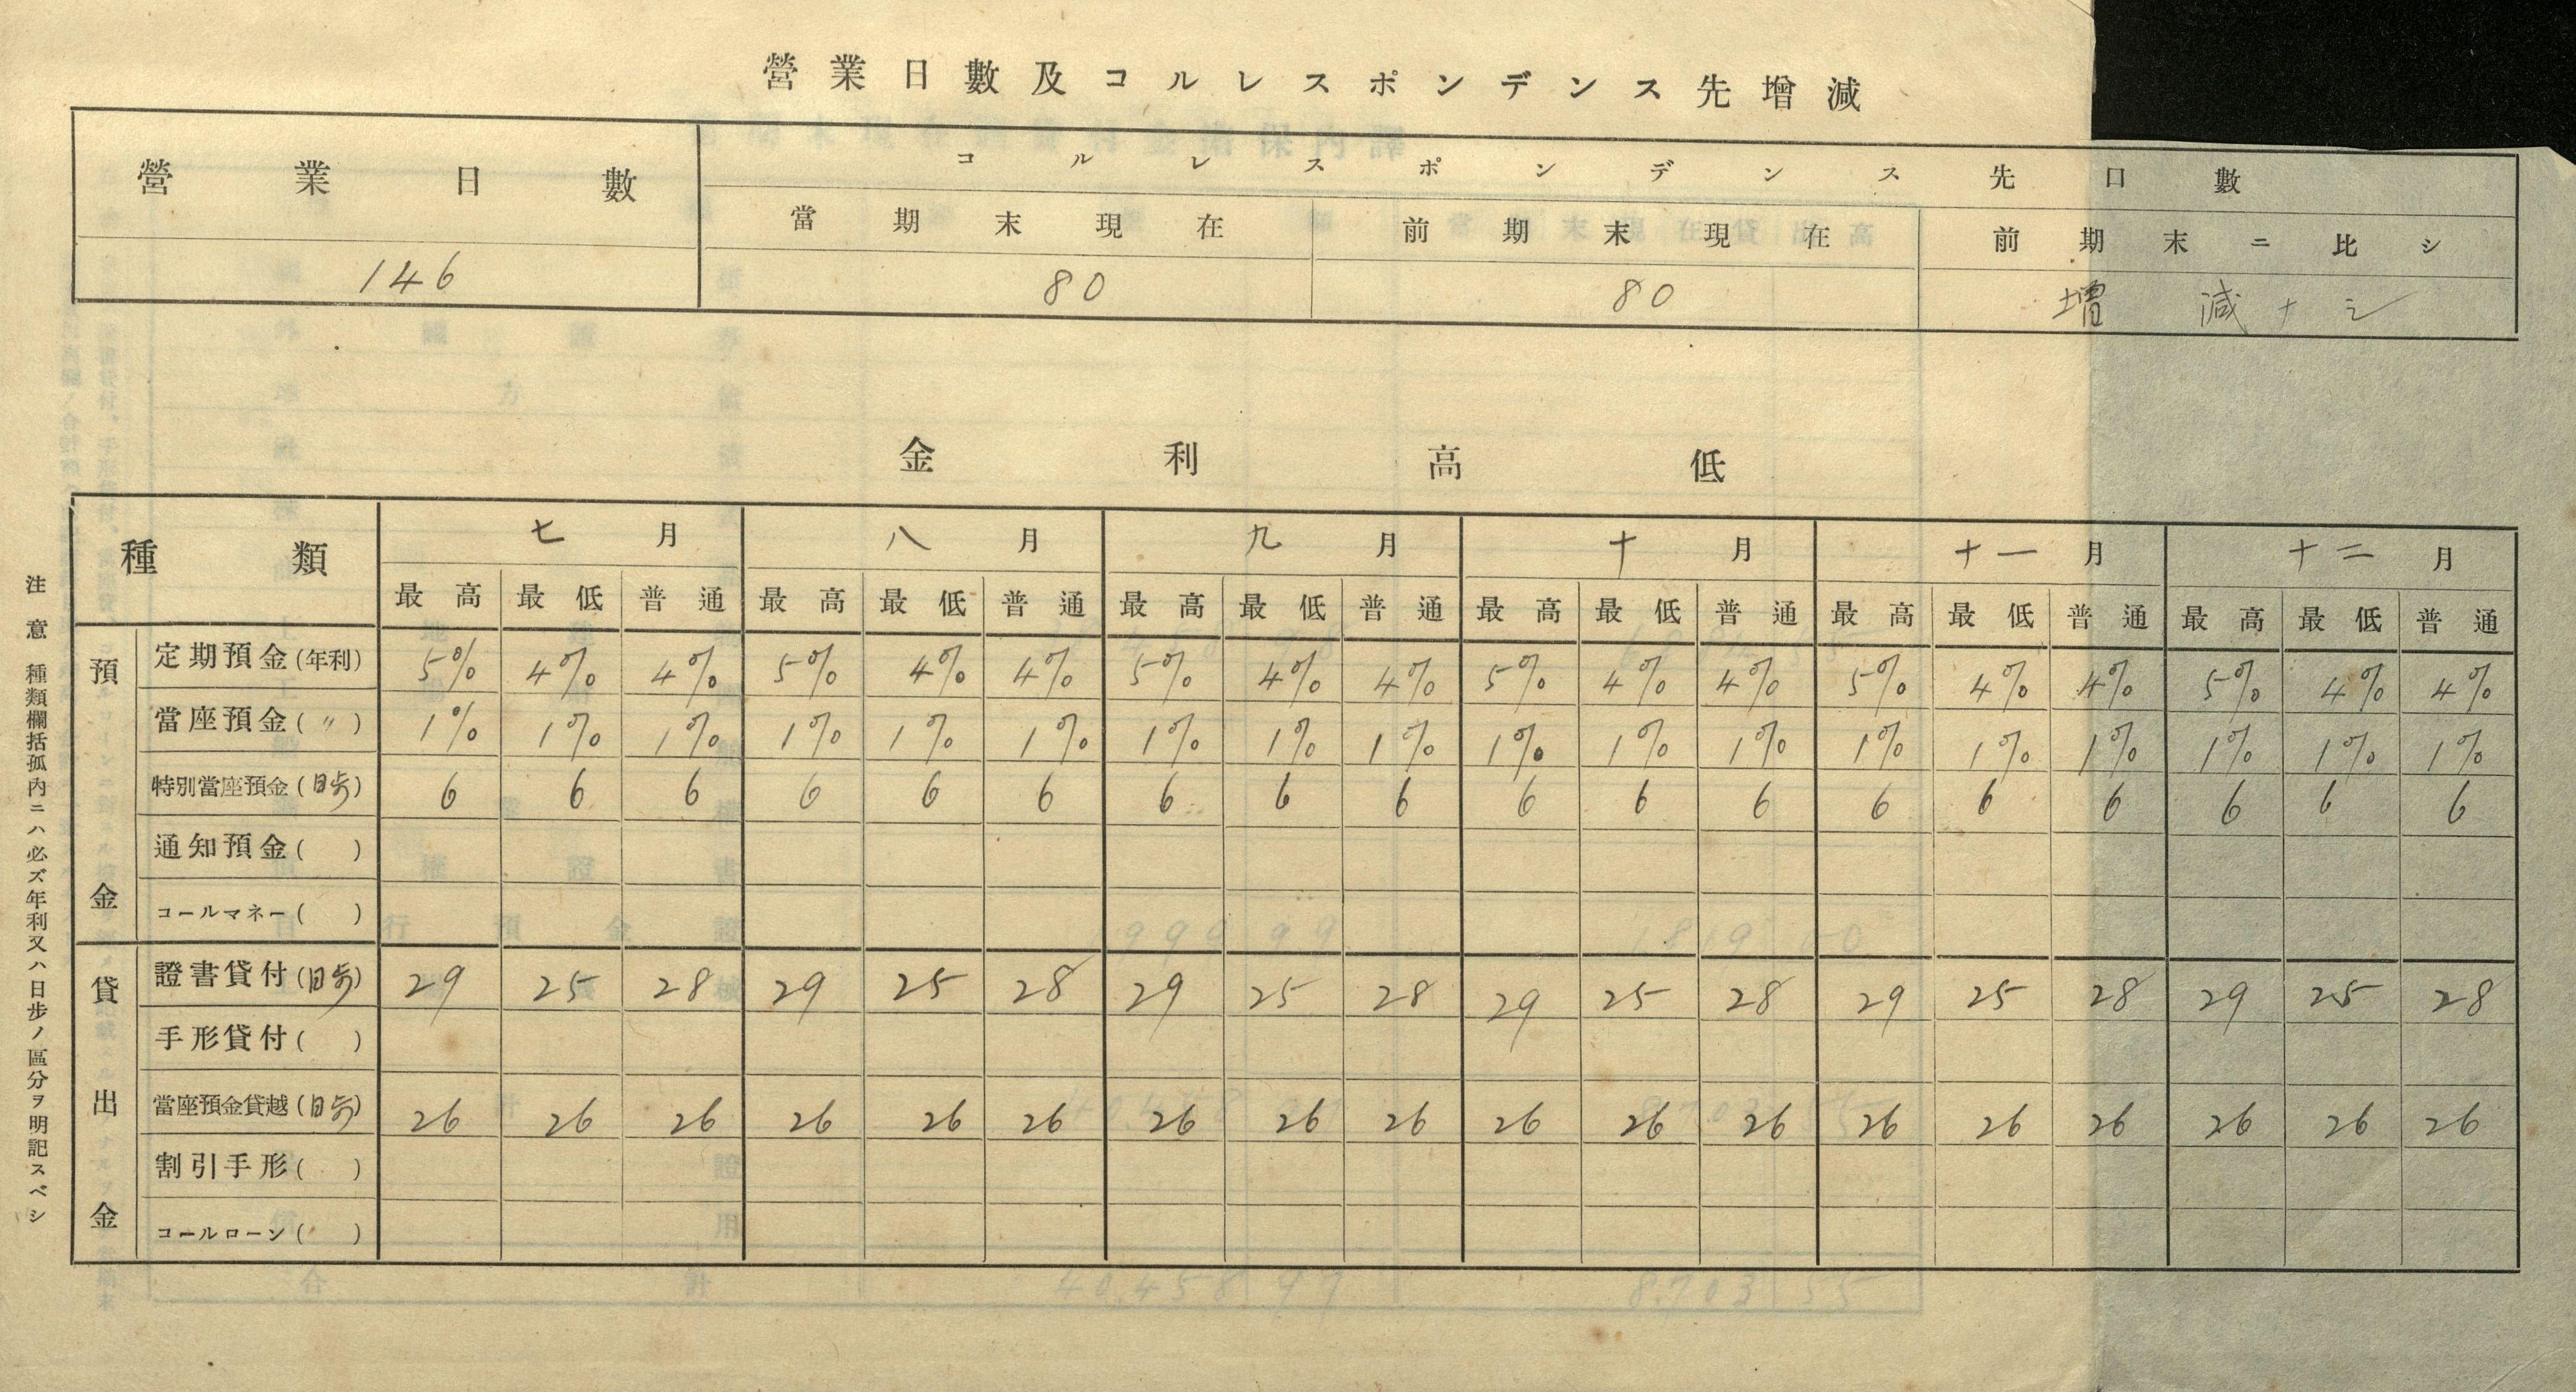 營業日數及コルレスポンデンス先增減
營業日數 コルレスポンデンス先口數
當期末現在 前期末現在 前期末ニ比シ
146 80 80 增減ナシ
金利高低
種類 七月 八月 九月 十月 十一月 十二月
最高 最低 普通 最高 最低 普通 最高 最低 普通 最高 最低 普通 最高 最低 普通 最高 最低 普通
預金
定期預金(年利) 5% 4% 4% 5% 4% 4% 5% 4% 4% 5% 4% 4% 5% 4% 4% 5% 4% 4%
當座預金(〃) 1% 1% 1% 1% 1% 1% 1% 1% 1% 1% 1% 1% 1% 1% 1% 1% 1% 1%
特別當座預金(日歩) 6 6 6 6 6 6 6 6 6 6 6 6 6 6 6 6 6 6
通知預金( )
コールマネー( )
貸出金
證書貸付(日歩) 29 25 28 29 25 28 29 25 28 29 25 28 29 25 28 29 25 28
手形貸付( )
當座預金貸越(日歩) 26 26 26 26 26 26 26 26 26 26 26 26 26 26 26 26 26 26
割引手形( )
コールローン( )
注意 種類欄括孤內ニハ必ズ年利又ハ日步ノ區分ヲ明記スベシ